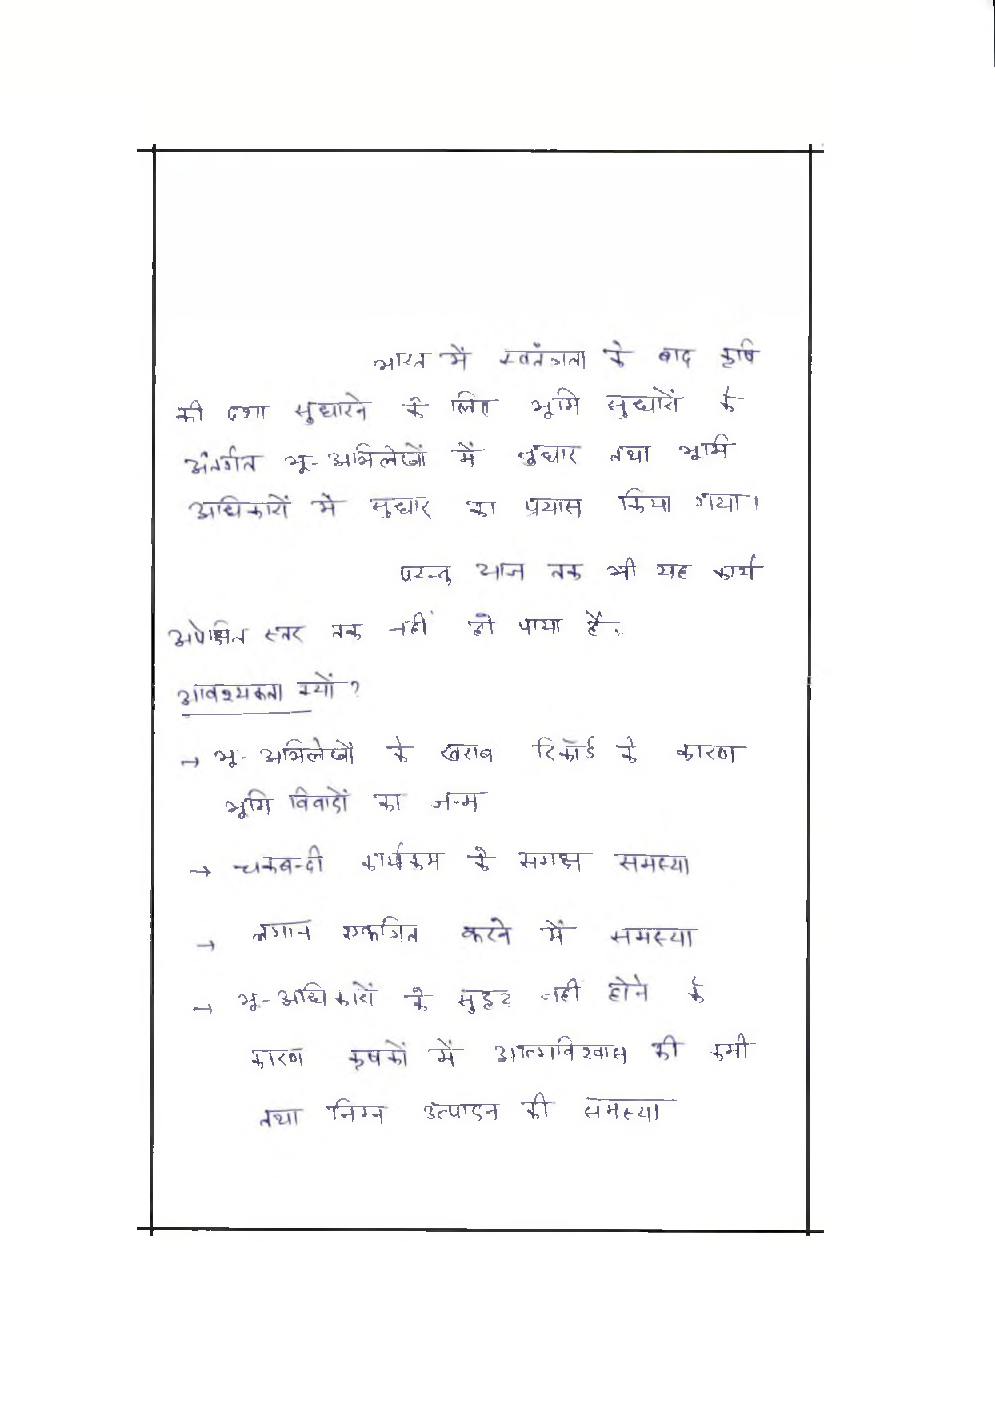 भारत में स्वतंत्रता के बाद कृषि
की दशा सुधारने के लिए भूमि सुधारों के
अंतर्गत भू-अभिलेखों में सुधार तथा भूमि
अधिकारों में सुधार का प्रयास किया गया।
परन्तु आज तक भी यह कार्य
अपेक्षित स्तर तक नहीं हो पाया है.
आवश्यकता क्यों ?
→ भू-अभिलेखों के खराब रिकॉर्ड के कारण
भूमि विवादों का जन्म
→ चकबन्दी कार्यक्रम के समक्ष समस्या
→ लगान एकत्रित करने में समस्या
→ भू-अधिकारों के सुदृढ़ नहीं होने के
कारण कृषकों में आत्मविश्वास की कमी
तथा निम्न उत्पादन की समस्या